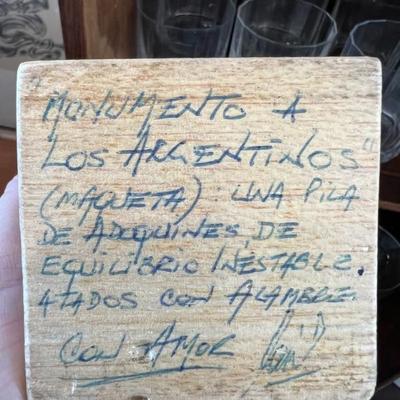 "MONUMENTO A
LOS ARGENTINOS"
(MAQUETA): UNA PILA
DE ADOQUINES, DE
EQUILIBRIO INESTABLE.
ATADOS CON ALAMBRE.
CON AMOR